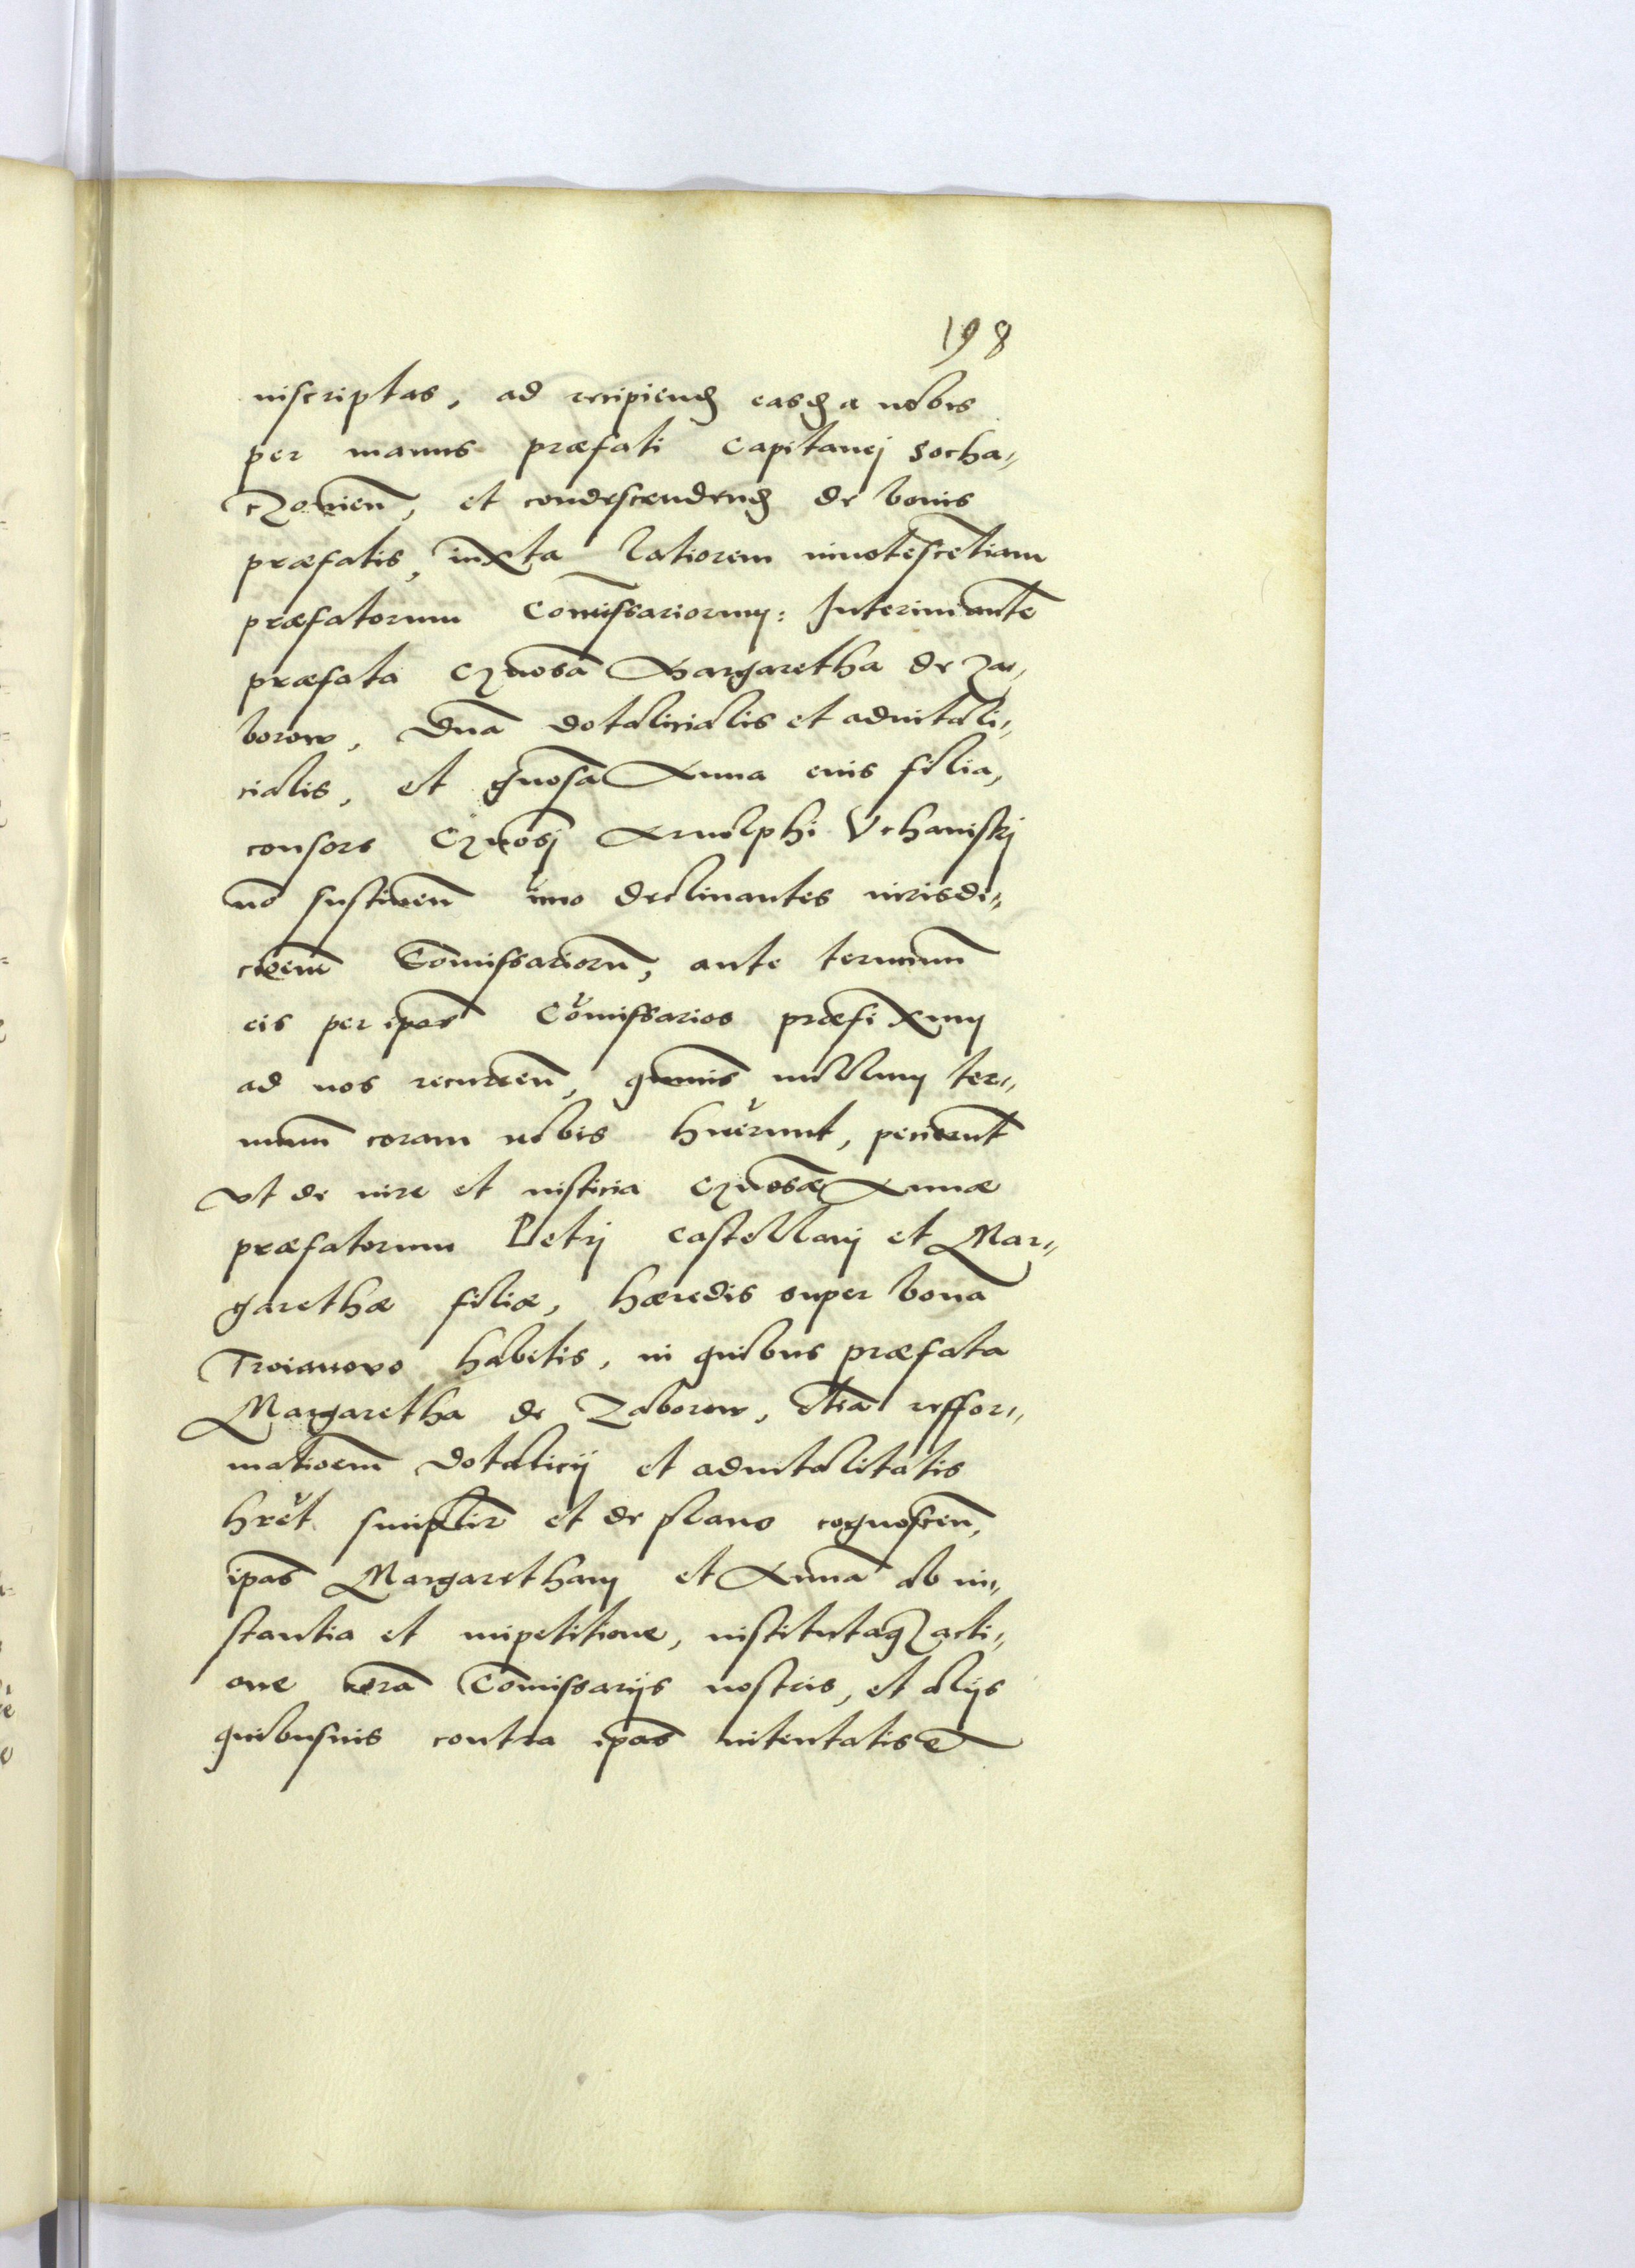 198
inscriptas, ad recipiend easd a nobis
per manus præfati Capitanej Socha„
czowien̄, et condescendend de bonis
præfatis, iuxta latiorem innotescētiam
præfatorum Com̄issariorum: Interim ante
præfata Gn̄osa Margaretha de Za„
borow, Dn̄a dotalicialis et aduitali„
cialis, et gn̄osa Anna eius filia,
consors Gn̄osj Arnolphi Vchaniskj
nō sustinen̄ imo declinantes iurisdi„
ctioem̄ Com̄issariorū, ante terminū
eis per ip̄os Com̄issarios præfixum
ad nos recurren̄, quāuis nullum ter„
minum̄ coram nobis hūerunt, petierūt
vt de iure et iusticia Gn̄osæ Annæ
præfatorum Petrj Castellanj et Mar„
garethæ filiæ, hæredis super bona
Troianowo habitis, in quibus præfata
Margaretha de Zaborow, etiā reffor„
matioem̄ dotalicij et aduitalitatis
hr̄et simplicr̄ et de plano cognoscen̄,
ip̄as Margaretham et Annā ab in„
stantia et impetitione, institutaq acti„
one corā Com̄issarijs nostris, et alijs
quibusuis contra ip̄as intentatis et